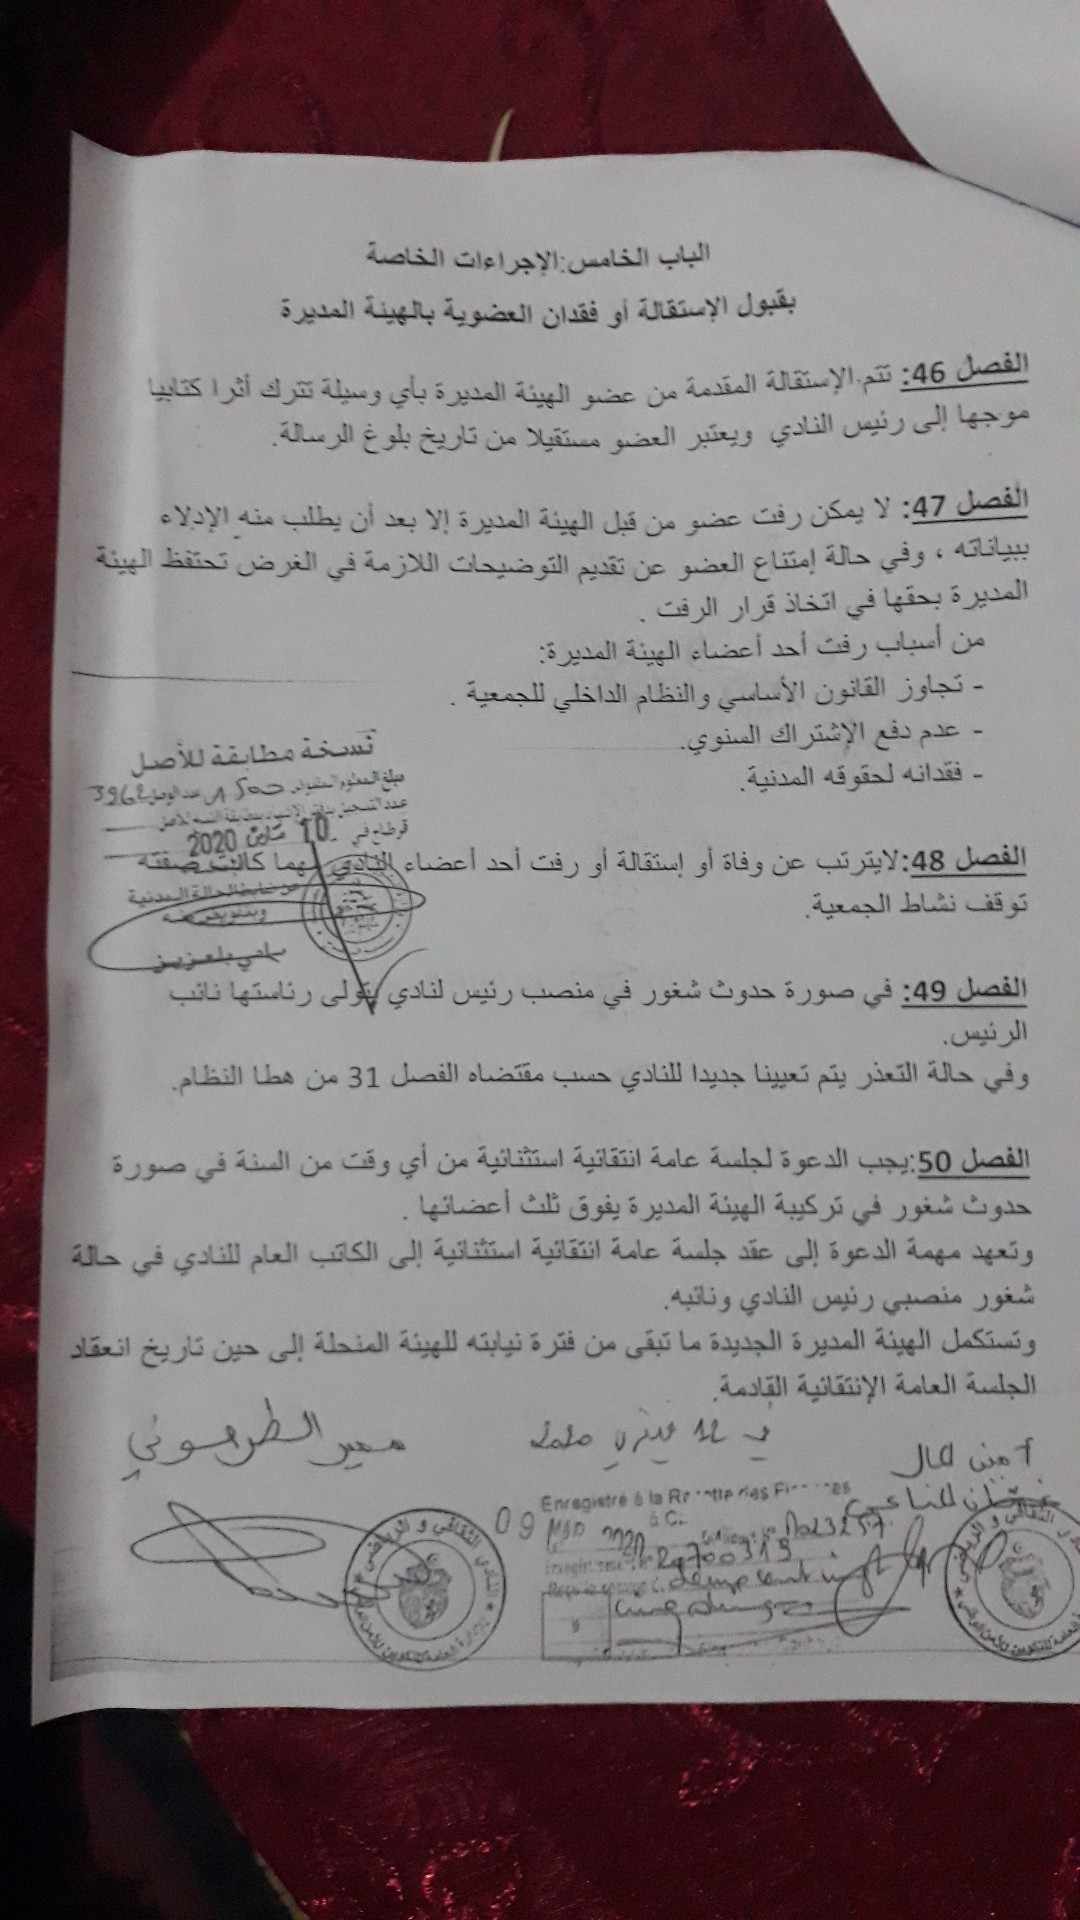 الباب الخامس:الإجراءات الخاصة
بقبول الإستقالة أو فقدان العضوية بالهيئة المديرة
الفصل 46: تتم الإستقالة المقدمة من عضو الهيئة المديرة بأي وسيلة تترك أثرا كتابيا
موجها إلى رئيس النادي ويعتبر العضو مستقيلا من تاريخ بلوغ الرسالة.
الفصل 47: لا يمكن رفت عضو من قبل الهيئة المديرة إلا بعد أن يطلب منه الإدلاء
ببياناته ، وفي حالة إمتناع العضو عن تقديم التوضيحات اللازمة في الغرض تحتفظ الهيئة
المديرة بحقها في اتخاذ قرار الرفت .
من أسباب رفت أحد أعضاء الهيئة المديرة:
- تجاوز القانون الأساسي والنظام الداخلي للجمعية .
- عدم دفع الإشتراك السنوي.
- فقدانه لحقوقه المدنية.
نسخة مطابقة للأصل
قرطاج في 10 مارس 2020
الفصل 48:لايترتب عن وفاة أو إستقالة أو رفت أحد أعضاء النادي مهما كانت صفته
توقف نشاط الجمعية.
الفصل 49: في صورة حدوث شغور في منصب رئيس لنادي يتولى رئاستها نائب
الرئيس.
وفي حالة التعذر يتم تعيينا جديدا للنادي حسب مقتضاه الفصل 31 من هطا النظام.
الفصل 50:يجب الدعوة لجلسة عامة انتقائية استثنائية من أي وقت من السنة في صورة
حدوث شغور في تركيبة الهيئة المديرة يفوق ثلث أعضائها .
وتعهد مهمة الدعوة إلى عقد جلسة عامة انتقائية استثنائية إلى الكاتب العام للنادي في حالة
شغور منصبي رئيس النادي ونائبه.
وتستكمل الهيئة المديرة الجديدة ما تبقى من فترة نيابته للهيئة المنحلة إلى حين تاريخ انعقاد
الجلسة العامة الإنتقائية القادمة.
أمين المال
Enregistré à la Recette des Finances
09 MAR 2020
النادي الثقافي و الرياضي